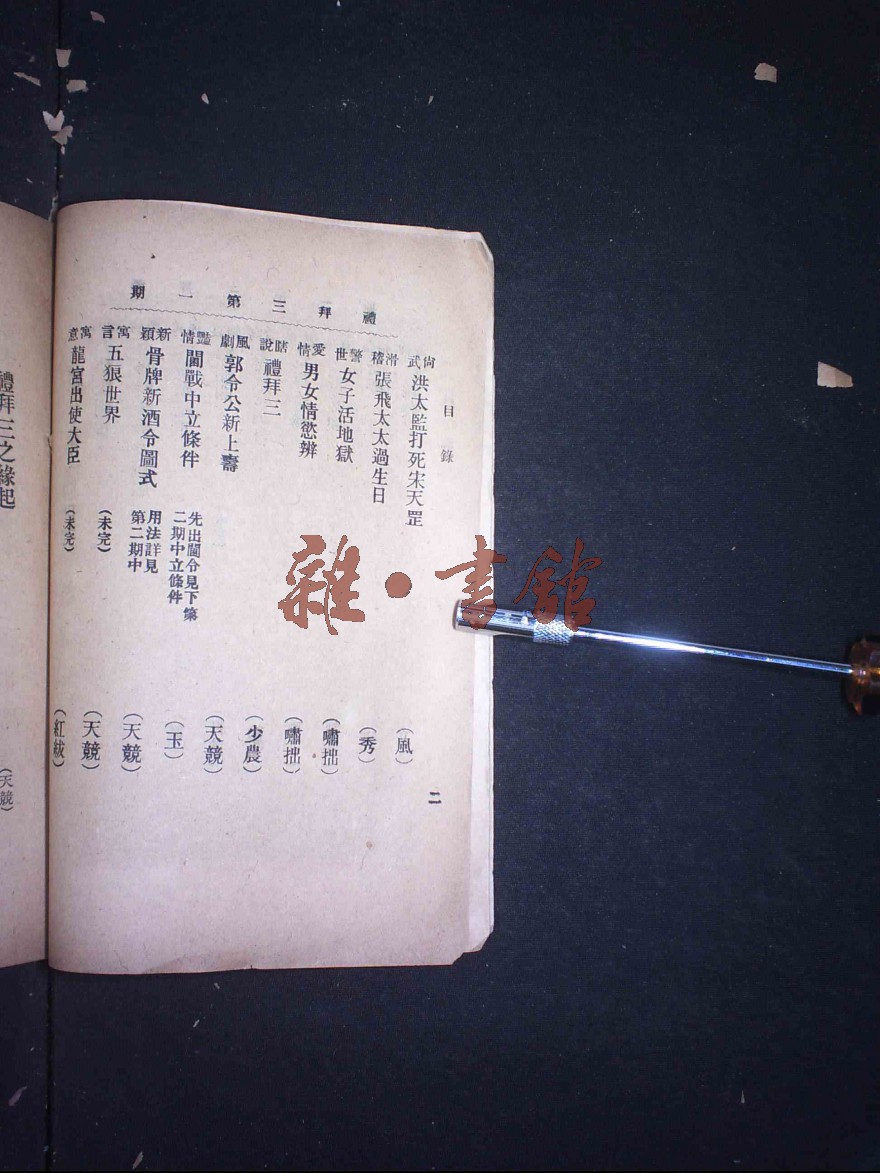 禮拜三第一期
目錄
二
尚武 洪太監打死宋天罡 (風)
滑稽 張飛太太過生日 (秀)
警世 女子活地獄 (嘯拙)
愛情 男女情慾辨 (嘯拙)
瞎說 禮拜三 (少農)
風劇 郭令公新上壽 (天競)
豔情 閫戰中立條件 先出閫令見下第二期中立條件 (玉)
新穎 骨牌新酒令圖式 用法詳見第二期中 (天競)
寓言 五狠世界 (未完) (天競)
寓意 龍宮出使大臣 (未完) (紅紱)
禮拜三之緣起 (天競)
雜·書館